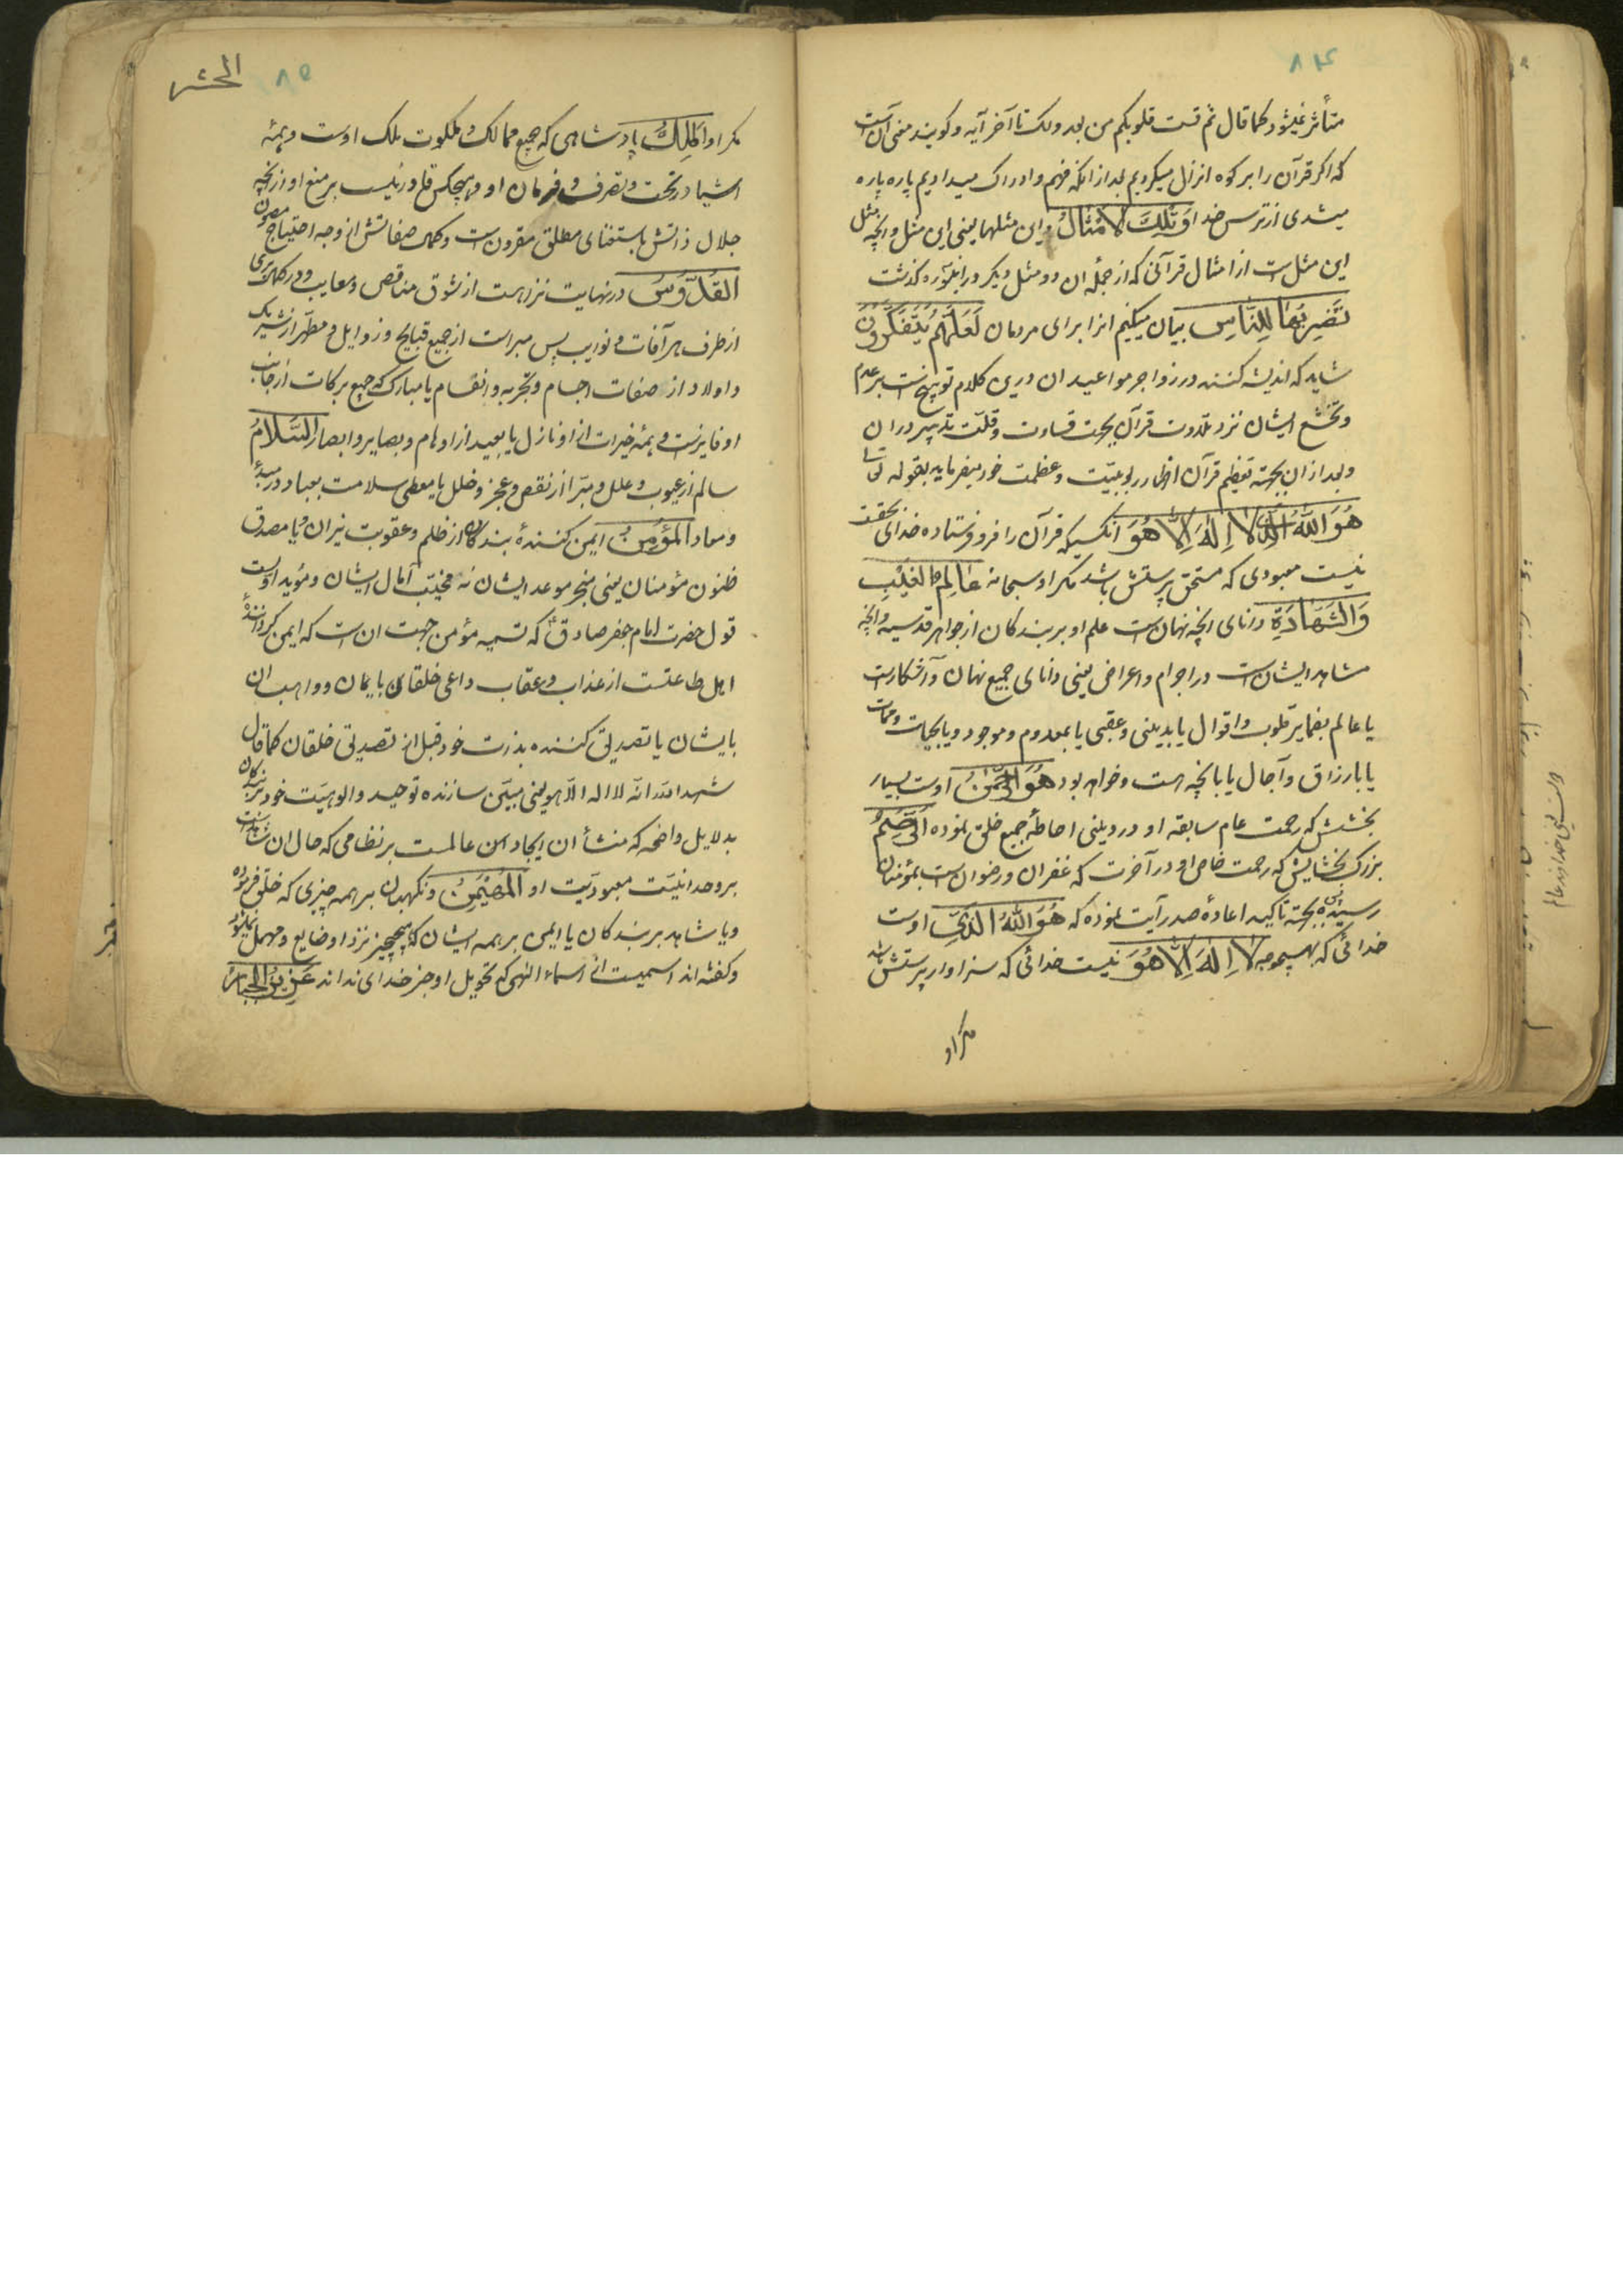 ۸۴
متأثر نمیشود کما قال ثم قست قلوبکم من بعد ذلک تا آخر آیه و کویند معنی آن است
که اکر قرآن را بر کوه انزال میکردیم بعد از انکه فهم و ادراک میدادیم پاره پاره
میشدی از ترس خدا وَ تِلْكَ الْاَمْثالُ و این مثلها یعنی این مثل و انچه مثل
این مثل است از امثال قرآنی که از جمله ان دو مثل دیکر در اینسوره کذشت
نَضْرِبُها لِلنّاسِ بیان میکنیم انرا برای مردمان لَعَلَّهُمْ یَتَفَکَّرُونَ
شاید که اندیشه کنند در زواجر مواعید ان درین کلام توبیخ است بر عدم
و تخشع ایشان نزد تلاوت قرآن بجهت قساوت و قلّت تدبر در ان
و بعد از ان بجهته تعظیم قرآن اظهار ربوبیّت و عظمت خود میفرماید بقوله تعالی
هُوَ اللهُ الَّذی لا اِلهَ اِلّا هُوَ انکسیکه قرآن را فرو فرستاده خدای بحقست
نیست معبودی که مستحق پرستش باشد مکر او سبحانه عالِمُ الْغَیْبِ
وَ الشَّهادَةِ دانای انچه نهان است علم او بر بندکان از جواهر قدسیه و انچه
مشاهد ایشان است در اجرام و اعراض یعنی دانای جمیع نهان و آشکار است
یا عالم بضمایر قلوب و اقوال یا بدینی و عقبی یا بمعدوم و موجود و یا بحیات و ممات
یا بارزاق و آجال یا بانچه هست و خواهد بود هُوَ الرَّحْمنُ اوست بسیار
بخشش که رحمت عام سابقه او در دینی احاطه جمیع خلق نموده الرَّحیمُ
بزرک بخشایش که رحمت خاص او در آخرت که غفران و رضوان است بمؤمنان
رسیده پس بجهته تاکید اعادهٔ صدر آیت نموده که هُوَ اللهُ الَّذی اوست
خدائی که بهیچوجه لا اِلهَ اِلّا هُوَ نیست خدائی که سزاوار پرستش باشد
مکر او
الحشر ۸۵
مکر او اَلْمَلِكُ پادشاهی که جمیع ممالک و ملکوت ملک اوست و همه
اشیا در تحت و تصرف و فرمان او و هیچکس قادر نیست بر منع او از انچه
جلال ذاتش باستغنای مطلق مقرون است و کمال صفاتش از وجه احتیاج مصون
الْقُدُّوسُ در نهایت نزاهست از شوق مناقص و معایب و در کمال بری
از طرف هر آفات و نوایب پس مبراست از جمیع قبایح و رذایل و مطهر از شریک
و اولاد از صفات اجسام و تجزیه و انقسام یا مبارک که جمیع برکات از جانب
او فایزست و همه خیرات از او نازل یا بعید از اوهام و بصایر و ابصار السَّلامُ
سالم از عیوب و علل و مبّرا از نقص و عجز و خلل یا معطی سلامت بعباد در مبدأ
و معاد الْمُؤْمِنُ ایمن کنندهٔ بندکان از ظلم و عقوبت نیران و یا مصدق
ظنون مؤمنان یعنی منجز موعد ایشان نه مخیّب آمال ایشان و مؤید اوست
قول حضرت امام جعفر صادق ع که تسمیه مؤمن جهت ان است که ایمن کرداننده
اهل طاعتست از عذاب و عقاب داعی خلقان بایمان و واهب ان
بایشان یا تصدیق کننده بذات خود قبل از تصدیق خلقان کما قال
شهد الله انّه لا اله الّا هو یعنی مبیّن سازنده توحید و الوهیّت خود بر بندکان
بدلایل واضحه که منشأ ان ایجاد این عالمست بر نظامی که حال ان شاهدست
بر وحدانیّت معبودیّت او الْمُهَیْمِنُ و نکهبان بر همه چیزی که خلق فرموده
و یا شاهد بر بندکان یا ایمن بر همه ایشان که هیچ چیز نزد او ضایع و مهمل نشود
و کفته اند اسمیست از اسماء الٰهی که تحویل او جز خدای نداند عَزیزُ الْجَبّارُ